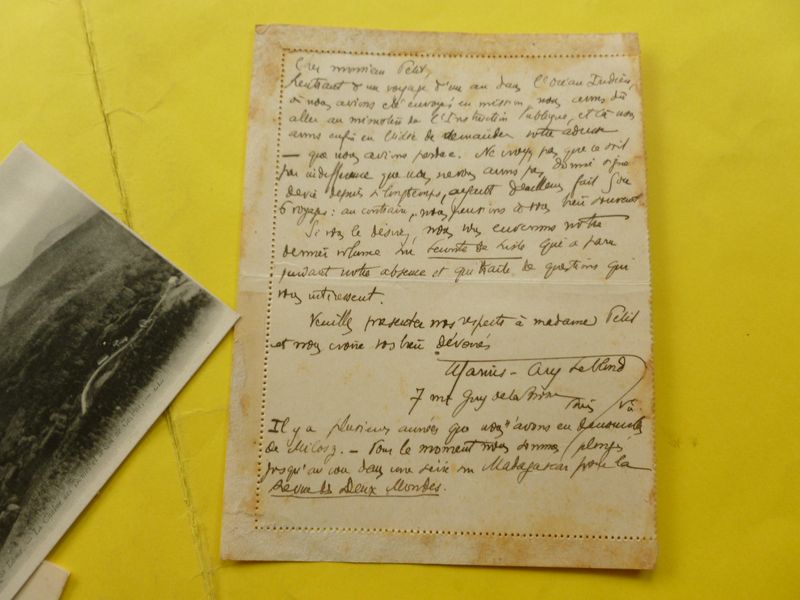 Cher monsieur Petit,
Rentrant d'un voyage d'un an dans l'Océan Indien,
où nous avions été envoyés en mission, nous avons dû
aller au ministère de l'Instruction Publique, et là nous
avons enfin eu l'idée de demander votre adresse
— que nous avions perdue. Ne croyez pas que ce soit
par indifférence que nous ne vous avons pas donné signe
de vie depuis si longtemps, ayant d'ailleurs fait 5 ou
6 voyages : au contraire, nous pensions à vous bien souvent
Si vous le désirez, nous vous enverrons notre
dernier volume sur Leconte de Lisle qui a paru
pendant notre absence et qui traite de questions qui
vous intéressent.
Veuillez présenter nos respects à madame Petit
et nous croire vos bien dévoués
Marius-Ary Leblond
7 rue Guy de la Brosse
Paris Ve
Il y a plusieurs années que nous n'avons eu de nouvelles
de Milosz. — Pour le moment nous sommes plongés
jusqu'au cou dans une série sur Madagascar pour la
Revue des Deux Mondes.